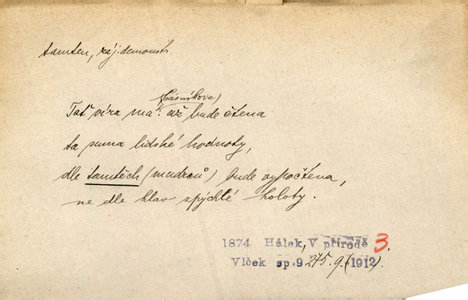 tamten, zájŕ demonstr.
(básníkova)
Tať víra má: až bude čtena
ta puna lidské hodnoty,
dle tamtěch (mudrců) bude vypočtena,
ne dle hlav zpýchlé holoty.
1874 Hálek, V přírodě 3.
Vlček sp. 9 275.9. (1912).